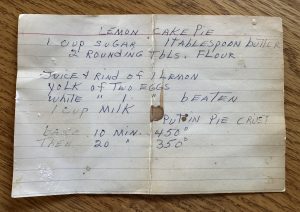 LEMON CAKE PIE
1 CUP SUGAR 1 TABLESPOON butter
2 ROUNDING Tbls. FLOUR
JUICE & RIND OF 1 LEMON
YOLK OF TWO EGGS
WHITE " 1 " BEATEN
1 CUP MILK
PUT IN PIE CRUST
BAKE 10 MIN. 450°
THEN 20 " 350°